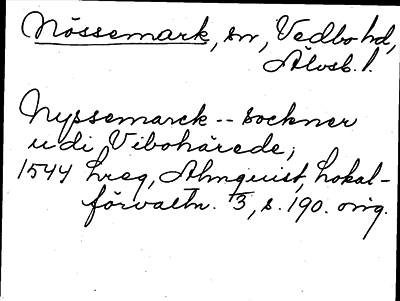 Nössemark, sn, Vedbo hd,
Älvsb. l.
Nyssemarck -- sockner
udi Vibohärede;
1544 hreg, Almquist, Lokal-
förvaltn. 1/3, s. 190. orig.